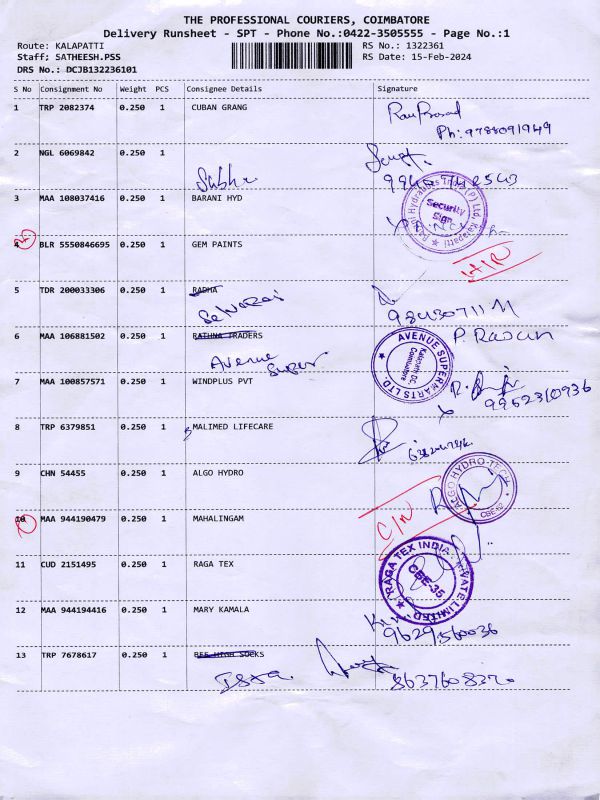 THE PROFESSIONAL COURIERS, COIMBATORE
Delivery Runsheet - SPT - Phone No.:0422-3505555 - Page No.:1
Route: KALAPATTI RS No.: 1322361
Staff; SATHEESH.PSS RS Date: 15-Feb-2024
DRS No.: DCJB132236101
S No Consignment No Weight PCS Consignee Details Signature
1 TRP 2082374 0.250 1 CUBAN GRANG
Ph: 9788091949
2 NGL 6069842 0.250 1
3 MAA 108037416 0.250 1 BARANI HYD
Security
Sign.
4 BLR 5550846695 0.250 1 GEM PAINTS
5 TDR 200033306 0.250 1 RADHA
Selvaraj
6 MAA 106881502 0.250 1 RATHNA TRADERS
Avenue
Super
AVENUE SUPERMARTS LTD
Kalapatti DC,
Coimbatore
7 MAA 100857571 0.250 1 WINDPLUS PVT
9952310936
8 TRP 6379851 0.250 1 MALIMED LIFECARE
9 CHN 54455 0.250 1 ALGO HYDRO
ALGO HYDRO-TECH
CBE-52
10 MAA 944190479 0.250 1 MAHALINGAM
11 CUD 2151495 0.250 1 RAGA TEX
RAGA TEX INDIA PRIVATE LIMITED
CBE-35
12 MAA 944194416 0.250 1 MARY KAMALA
9629560036
13 TRP 7678617 0.250 1 BEE HIGH SOCKS
8637608370